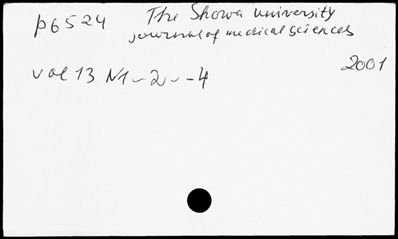 p6524 The Showa university
journal of medical sciences
vol 13 N1-2--4 2001